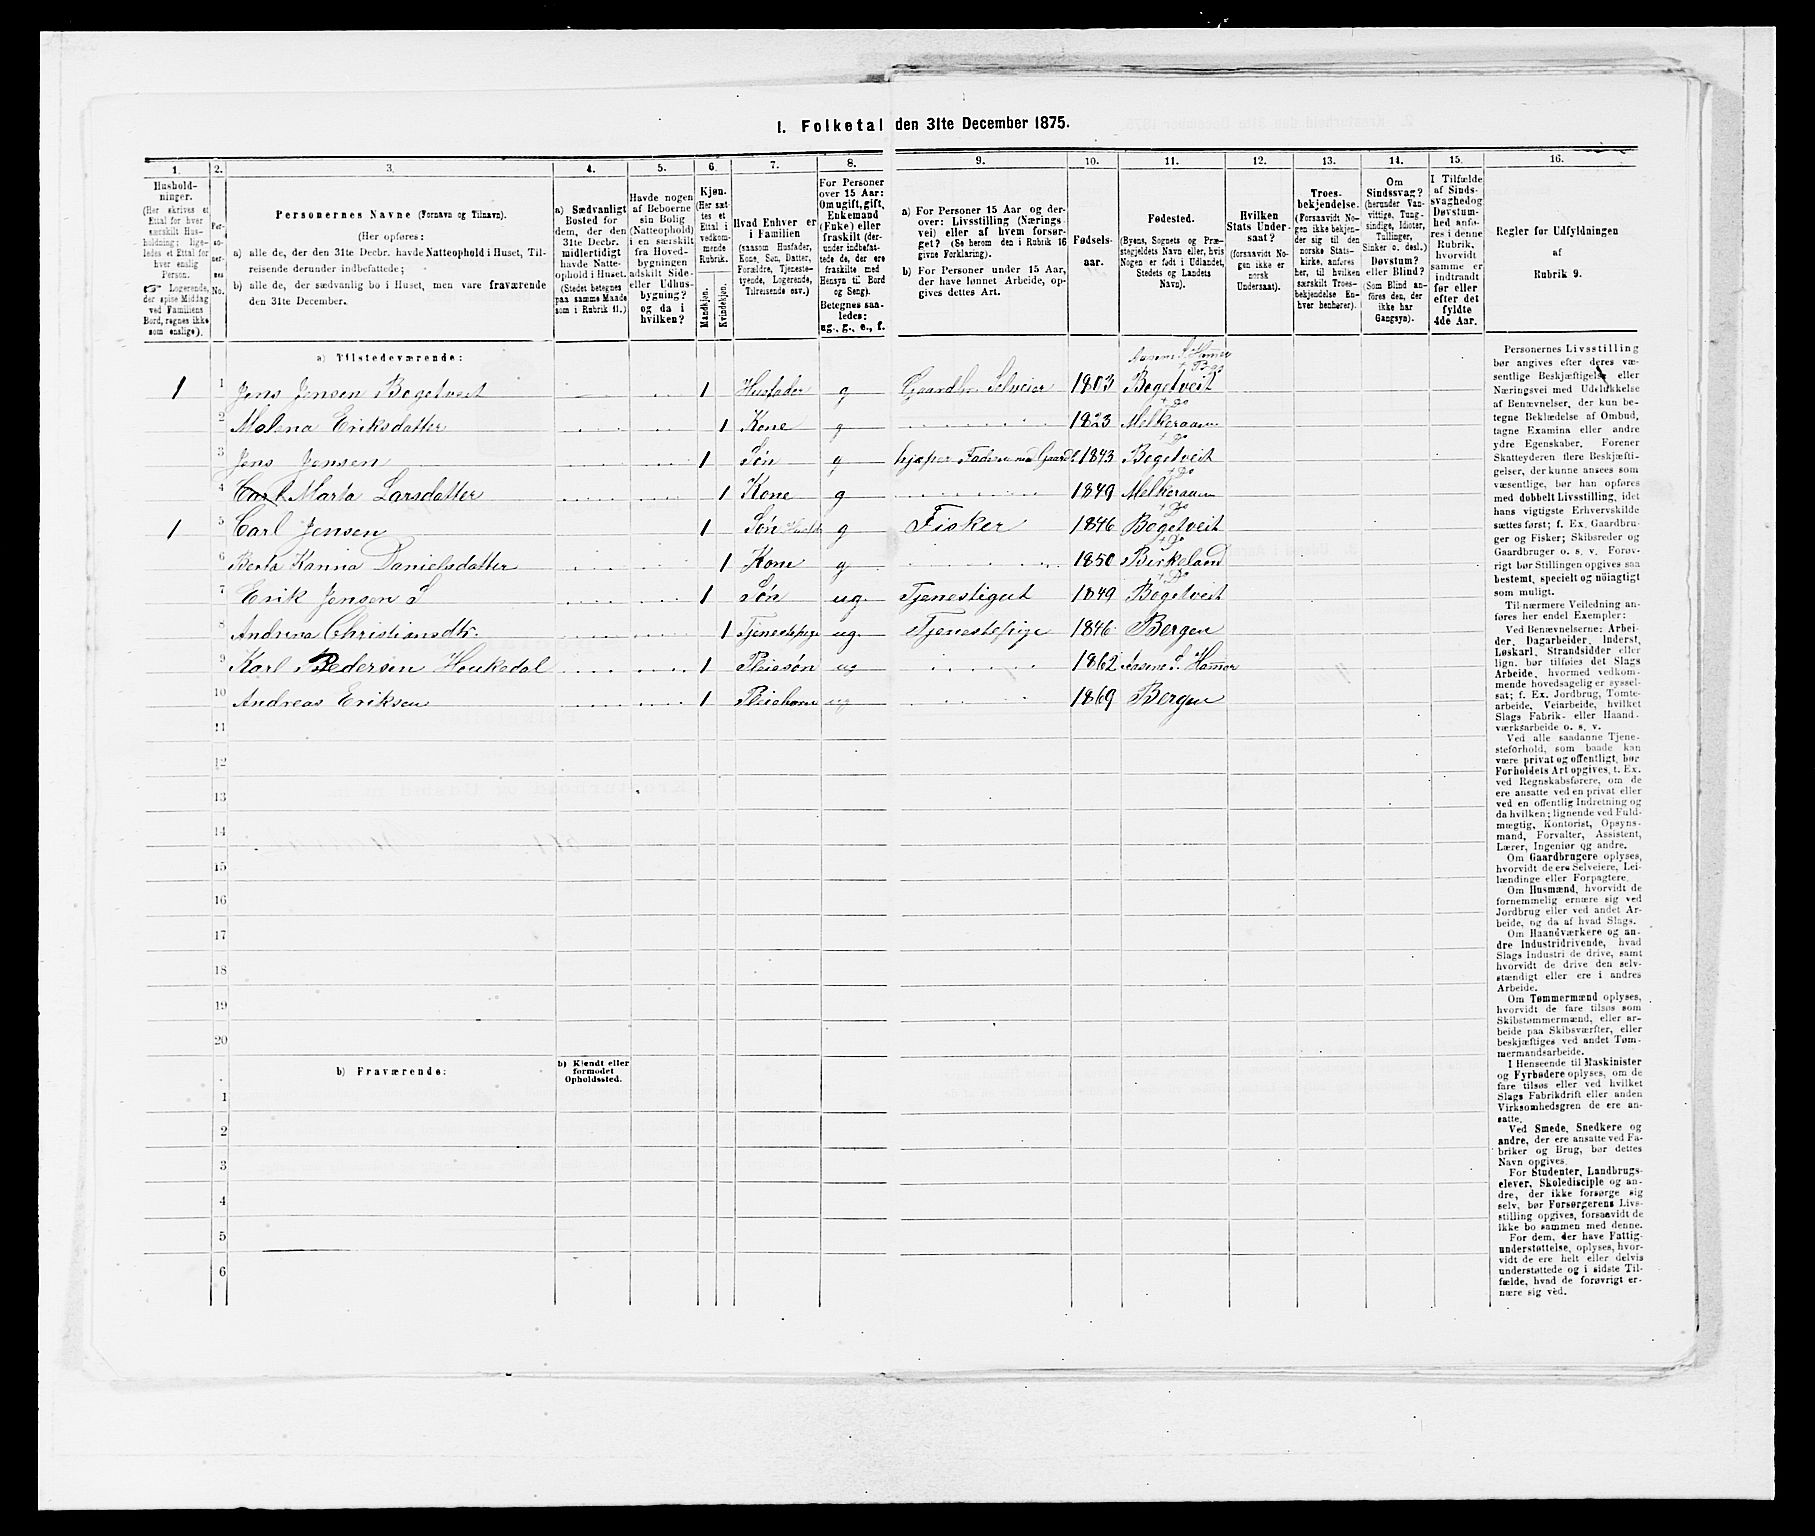 I. Folketal den 31te December 1875.
1. 2. 3. 4. 5. 6. 7. 8. 9. 10. 11. 12. 13. 14. 15. 16.
Hushold-
ninger.
(Her skrives et
Ettal for hver
særskilt Hus-
holdning; lige-
ledes et Ettal for
hver enslig
Person.
☞ Logerende,
der spise Middag
ved Familiens
Bord, regnes ikke
som enslige).
Per-
so-
ner-
nes
No.
Personernes Navne (Fornavn og Tilnavn).
(Her opføres:
a) alle de, der den 31te Decbr. havde Natteophold i Huset, Til-
reisende derunder indbefattede;
b) alle de, der sædvanlig bo i Huset, men vare fraværende
den 31te December.
a) Sædvanligt
Bosted for
dem, der den
31te Decbr.
midlertidigt
havde Natte-
ophold i Huset.
(Stedet betegnes
paa samme Maade
som i Rubrik 11.)
Havde nogen
af Beboerne
sin Bolig
(Natteophold)
i en særskilt
fra Hoved-
bygningen
adskilt Side-
eller Udhus-
bygning?
og da i
hvilken?
Kjøn.
(Her sæt-
tes et
Ettal i
vedkom-
mende
Rubrik.
Mandkjøn.
Kvindekjøn.
Hvad Enhver er
i Familien
(saasom Husfader,
Kone, Søn, Datter,
Forældre, Tjeneste-
tyende, Logerende,
Tilreisende osv.)
For Personer
over 15 Aar:
Om ugift, gift,
Enkemand
(Enke) eller
fraskilt (der-
under indbefat-
tede de, der ere
fraskilte med
Hensyn til Bord
og Seng).
Betegnes saa-
ledes:
ug., g., e., f.
a) For Personer 15 Aar og der-
over: Livsstilling (Nærings-
vei) eller af hvem forsør-
get? (Se herom den i Rubrik 16
givne Forklaring).
b) For Personer under 15 Aar,
der have lønnet Arbeide, op-
gives dettes Art.
Fødsels-
aar.
Fødested.
(Byens, Sognets og Præ-
stegjeldets Navn eller, hvis
Nogen er født i Udlandet,
Stedets og Landets
Navn).
Hvilken
Stats Under-
saat?
(forsaavidt No-
gen ikke er
norsk
Undersaat).
Troes-
bekjendelse.
(Forsaavidt No-
gen ikke bekjen-
der sig til den
norske Stats-
kirke, anføres
her, til hvilken
særskilt Troes-
bekjendelse En-
hver henhører).
Om
Sindssvag?
(herunder Van-
vittige, Tung-
sindige, Idioter,
Tullinger,
Sinker o. desl.)
Døvstum?
eller Blind?
(Som Blind an-
føres den, der
ikke har
Gangsyn).
I Tilfælde
af Sinds-
svaghed og
Døvstum-
hed anfø-
res i denne
Rubrik,
hvorvidt
samme er
indtraadt
før eller
efter det
fyldte
4de Aar.
Regler for Udfyldningen
af
Rubrik 9.
a) Tilstedeværende:
1 1 Jens Jensen Bogetveit 1 Husfader g Gaardbr. Selveier 1803 Bogetveit
2 Malena Eriksdatter 1 Kone g 1823 Melkeraaen Do
3 Jens Jensen 1 Søn g hjælper Faderen med Gaardb. 1843 Bogetveit Do
4 Carl Marta Larsdatter 1 Kone g 1849 Melkeraaen Do
1 5 Carl Jensen 1 Søn g Fisker 1846 Bogetveit Do
6 Berta Kanna Danielsdatter 1 Kone g 1850 Birkeland Do
7 Erik Jensen S 1 Søn ug Tjenestegut 1849 Bogetveit Do
8 Andrina Christiansdtr. 1 Tjenestepige ug. Tjenestepige 1846 Bergen
9 Karl Pedersen Houkedal 1 Pleiesøn ug 1862 Aasene S. Hamer
10 Andreas Eriksen 1 Pleiebarn ug 1869 Bergen
11
12
13
14
15
16
17
18
19
20
b) Fraværende:
b) Kjendt eller
formodet
Opholdssted.
1
2
3
4
5
6
Personernes Livsstilling
bør angives efter deres væ-
sentlige Beskjæftigelse eller
Næringsvei med Udelukkelse
af Benævnelser, der kun be-
tegne Beklædelse af Ombud,
tagne Examina eller andre
ydre Egenskaber. Forener
Skatteyderen flere Beskjæfti-
gelser, der kunne ansees som
væsentlige, bør han opføres
med dobbelt Livsstilling, idet
hans vigtigste Erhvervskilde
sættes først; f. Ex. Gaardbru-
ger og Fisker; Skibsreder og
Gaardbruger o. s. v. Forøv-
rigt bør Stillingen opgives saa
bestemt, specielt og nøiagtigt
som muligt.
Til nærmere Veiledning an-
føres her endel Exempler:
Ved Benævnelserne: Arbei-
der, Dagarbeider, Inderst,
Løskarl, Strandsidder eller
lign. bør tilføies det Slags
Arbeide, hvormed vedkom-
mende hovedsagelig er syssel-
sat; f. Ex. Jordbrug, Tomte-
arbeide, Veiarbeide, hvilket
Slags Fabrik- eller Haand-
værksarbeide o. s. v.
Ved alle saadanne Tjene-
steforhold, som baade kan
være privat og offentligt, bør
Forholdets Art opgives, t. Ex.
ved Regnskabsførere, om de
ere ansatte ved en privat eller
ved en offentlig Indretning og
da hvilken; lignende ved Fuld-
mægtig, Kontorist, Opsyns-
mand, Forvalter, Assistent,
Lærer, Ingeniør og andre.
Om Gaardbrugere oplyses,
hvorvidt de ere Selveiere, Lei-
lændinge eller Forpagtere.
Om Husmænd, hvorvidt de
fornemmelig ernære sig ved
Jordbrug eller ved andet Ar-
beide, og da af hvad Slags.
Om Haandværkere og an-
dre Industridrivende, hvad
Slags Industri de drive, samt
hvorvidt de drive den selv-
stændigt eller ere i andres
Arbeide.
Om Tømmermænd oplyses,
hvorvidt de fare tilsøs som
Skibstømmermænd, eller ar-
beide paa Skibsværfter, eller
beskjæftiges ved andet Tøm-
mermandsarbeide.
I Henseende til Maskinister
og Fyrbødere oplyses, om de
fare tilsøs eller ved hvilket
Slags Fabrikdrift eller anden
Virksomhedsgren de ere an-
satte.
Ved Smede, Snedkere og
andre, der ere ansatte ved Fa-
briker og Brug, bør dettes
Navn opgives.
For Studenter, Landbrugs-
elever, Skoledisciple og an-
dre, der ikke forsørge sig
selv, bør Forsørgerens Livs-
stilling opgives, forsaavidt de
ikke bo sammen med denne.
For dem, der have Fattig-
understøttelse, oplyses, hvor-
vidt de ere helt eller delvis
understøttede og i sidste Til-
fælde, hvad de forøvrigt er-
nære sig ved.